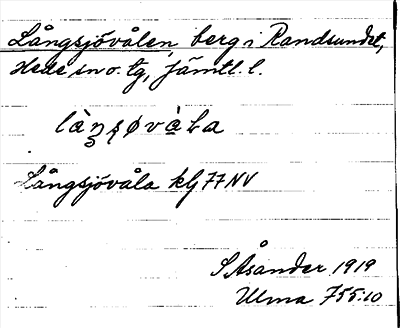 Långsjövålen, berg i Randsundet,
Hede sn o. tg, Jämtl. l.
Långsjövåla klj 77 NV
S Åsander 1919
Ulma 755:10